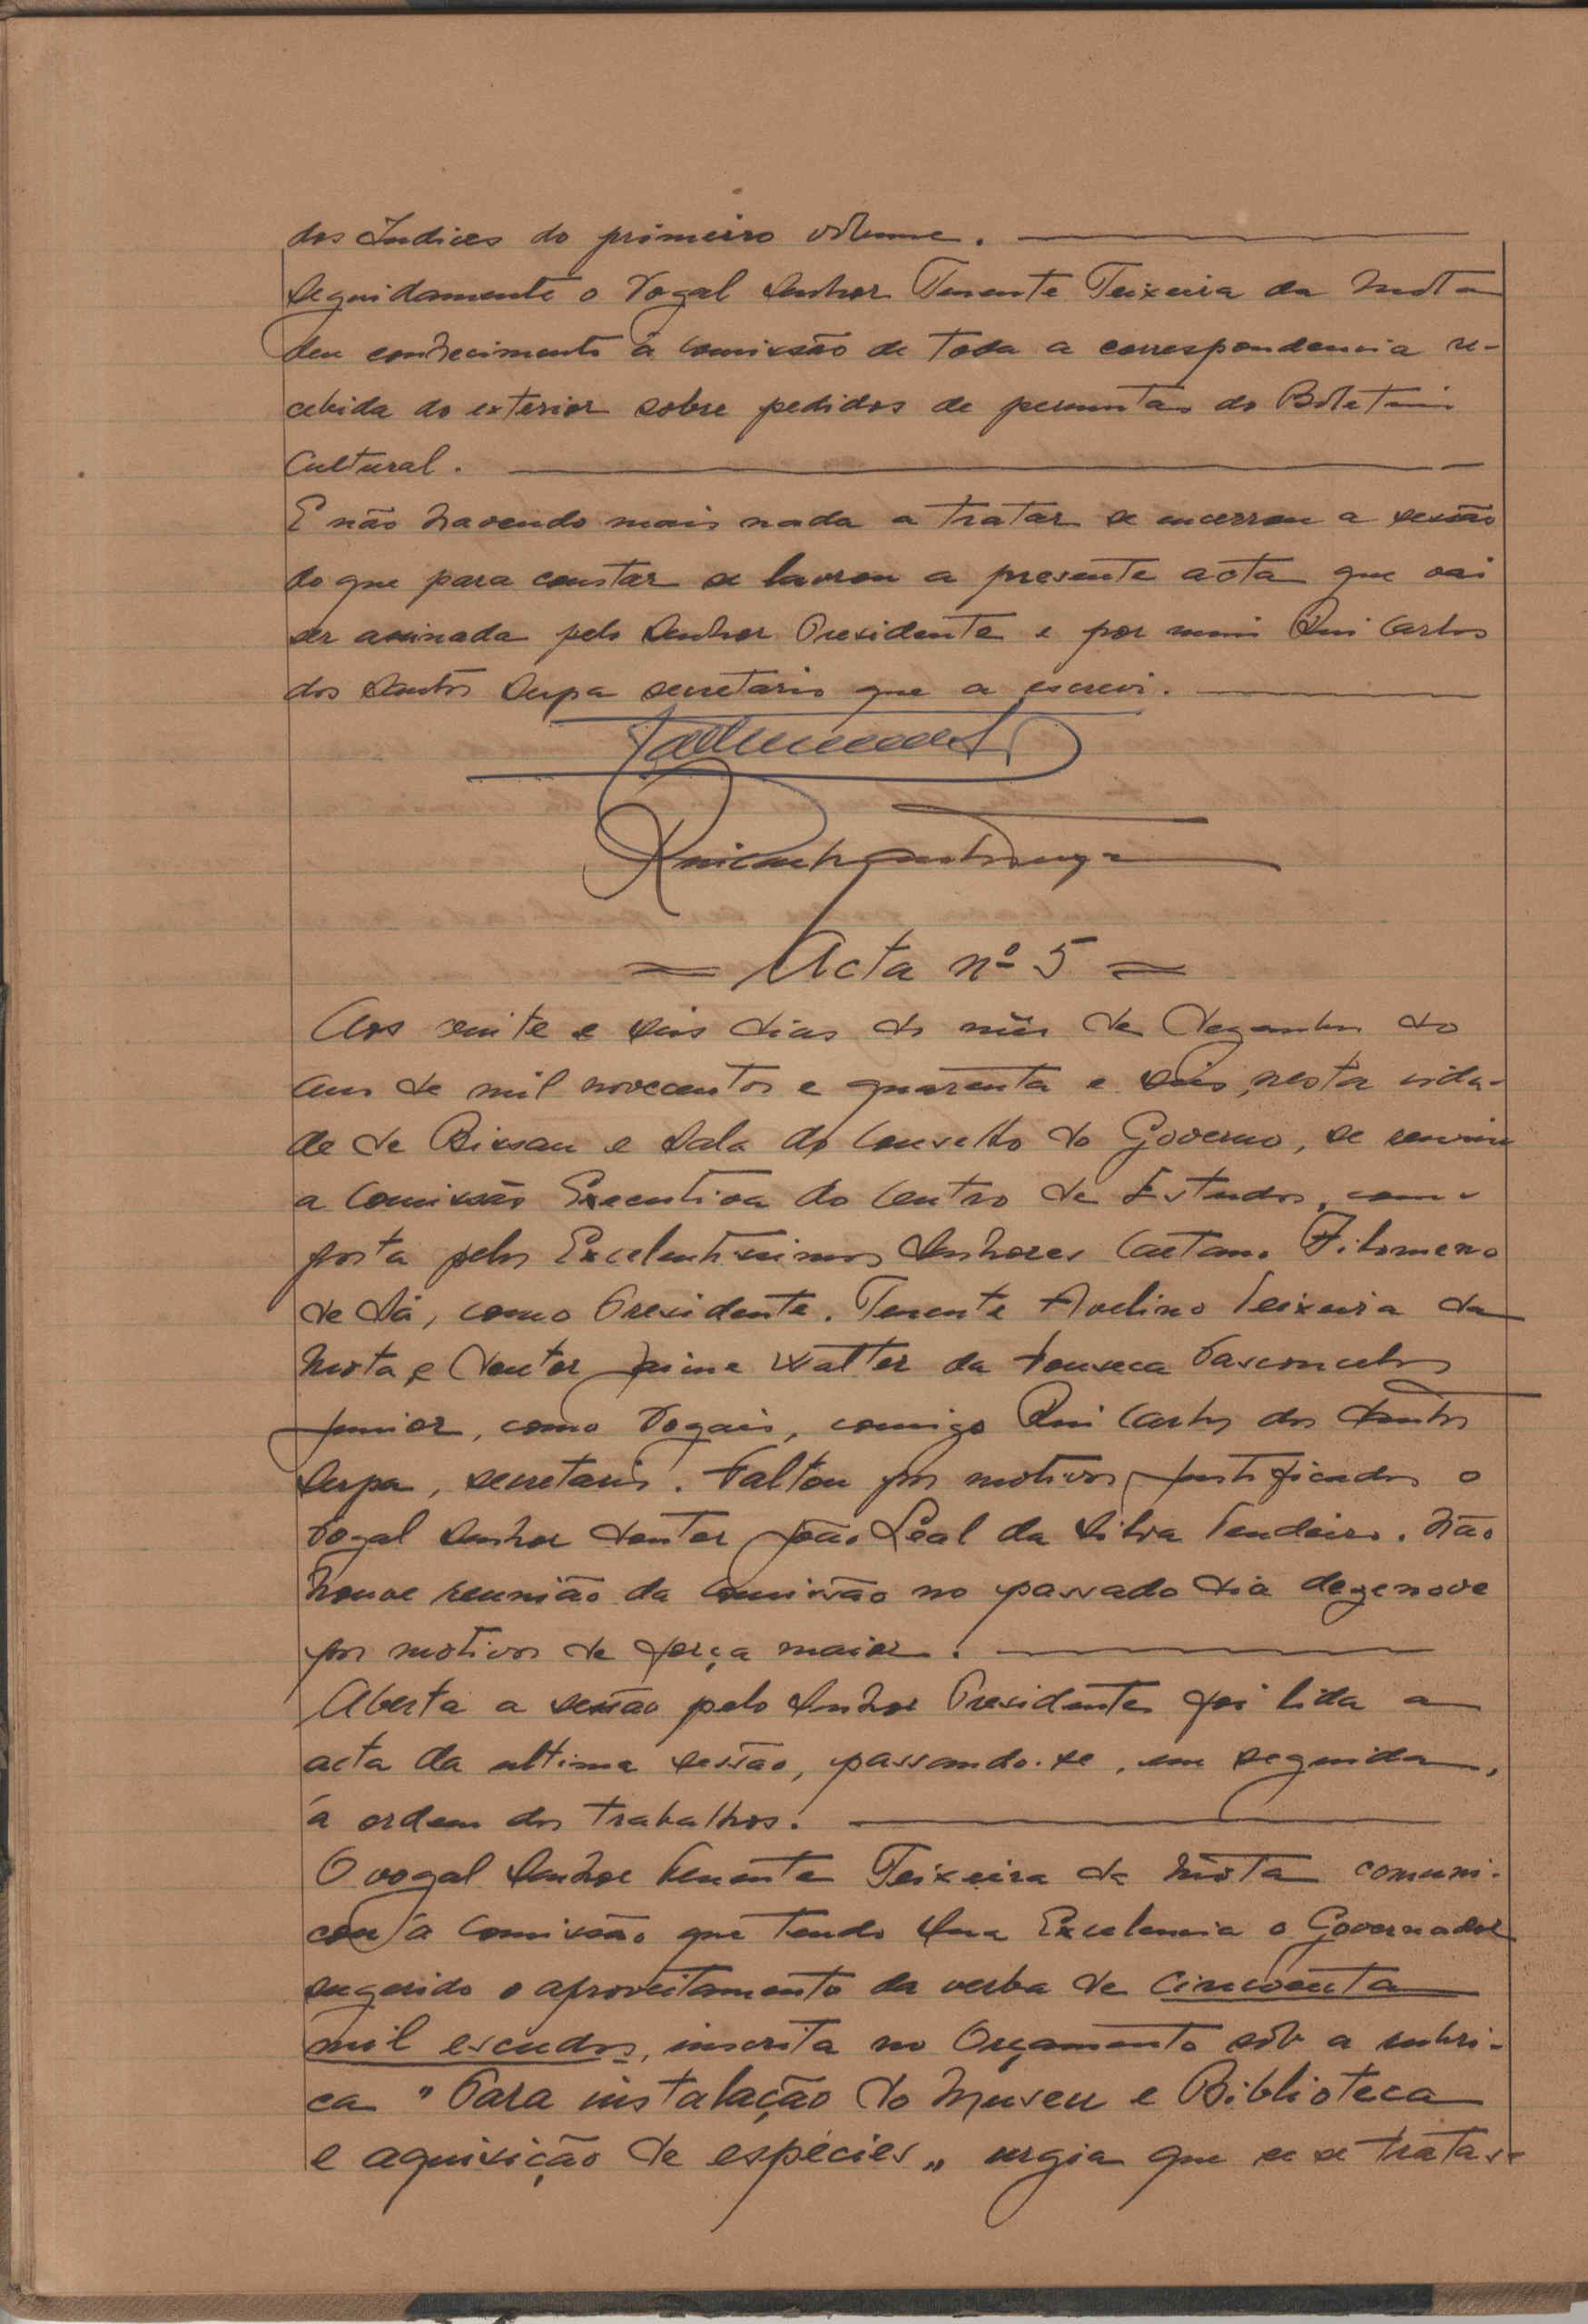 dos Indices do primeiro volume.
Seguidamente o Vogal Senhor Tenente Teixeira da Mota
deu conhecimento á Comissão de toda a correspondencia re-
cebida do exterior sobre pedidos de permutas do Boletim
Cultural.
E não havendo mais nada a tratar se encerrou a sessão
do que para constar se lavrou a presente acta que vai
ser assinada pelo Senhor Presidente e por mim Rui Carlos
dos Santos Serpa secretario que a escrevi.
= Acta nº 5 =
Aos vinte e seis dias do mês de Dezembro do
ano de mil novecentos e quarenta e seis, nesta cida-
de de Bissau e Sala do Conselho do Governo, se reuniu
a Comissão Executiva do Centro de Estudos, com-
posta pelos Excelentissimos Senhores Caetano Filomeno
de Sá, como Presidente. Tenente Avelino Teixeira da
Mota e Doutor Jaime Walter da Fonseca Vasconcelos
Junior, como Vogais, comigo Rui Carlos dos Santos
Serpa, secretario. Faltou por motivos justificados o
Vogal Senhor doutor João Leal da Silva Tendeiro. Não
houve reunião da Comissão no passado dia dezenove
por motivos de força maior.
Aberta a sessão pelo Senhor Presidente foi lida a
acta da ultima sessão, passando-se, em seguida,
á ordem dos trabalhos.
O vogal Senhor Tenente Teixeira da Mota comuni-
cou á Comissão que tendo Sua Excelencia o Governador
sugerido o aproveitamento da verba de cincoenta
mil escudos, inscrita no Orçamento sob a rubri-
ca "Para instalação do Museu e Biblioteca
e aquisição de espécies" urgia que se se tratasse